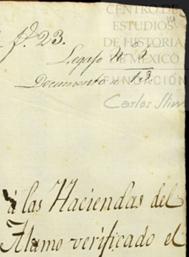 CENTRO DE
ESTUDIOS
DE HISTORIA
DE MEXICO
FUNDACIÓN
Carlos Slim
f. 23.
Legajo N. 3
Documento n. 13
á las Haciendas del
Alamo verificado el